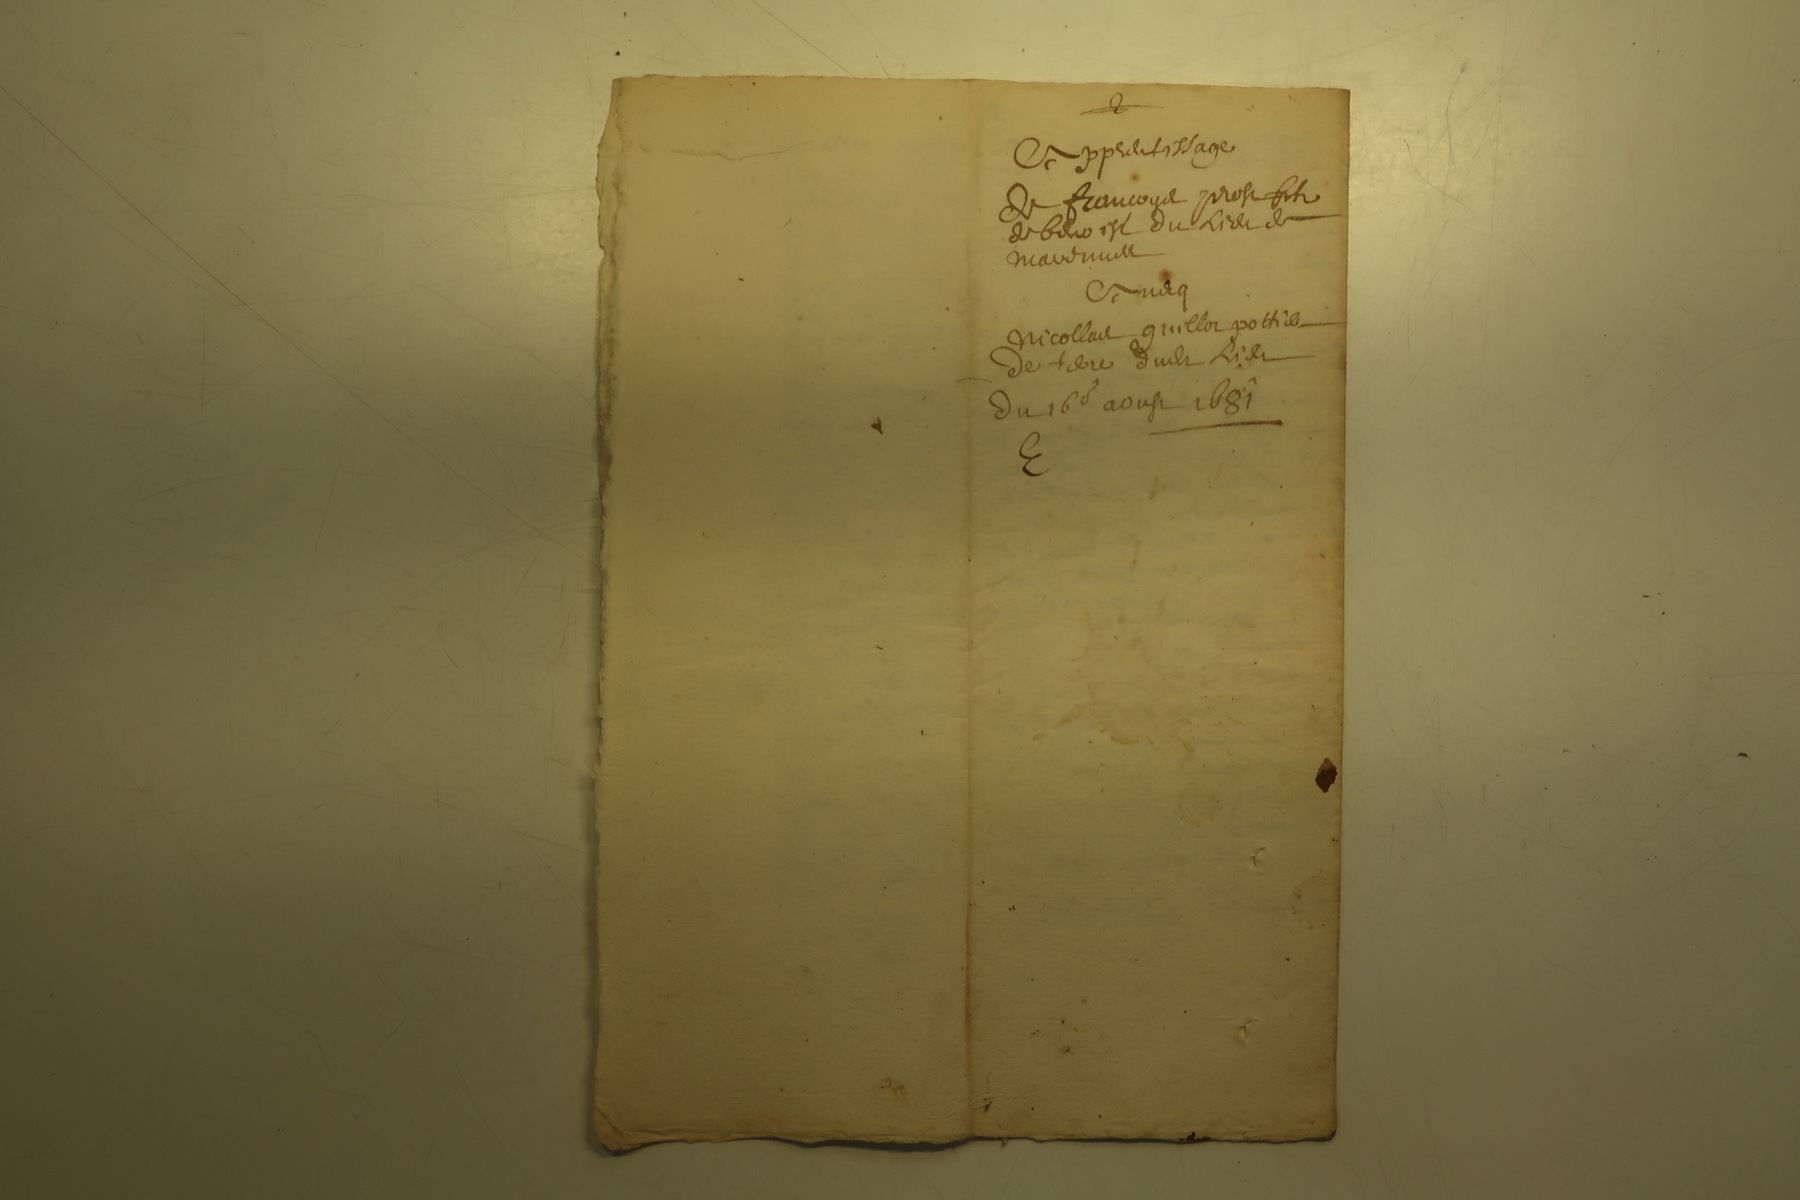 2
Apprentissage
De francoys prost filz
de benoist du Lieu de
Avecq
Nicollas guillot pottier
De terre dudt Lieu
Du 16e aoust 1681